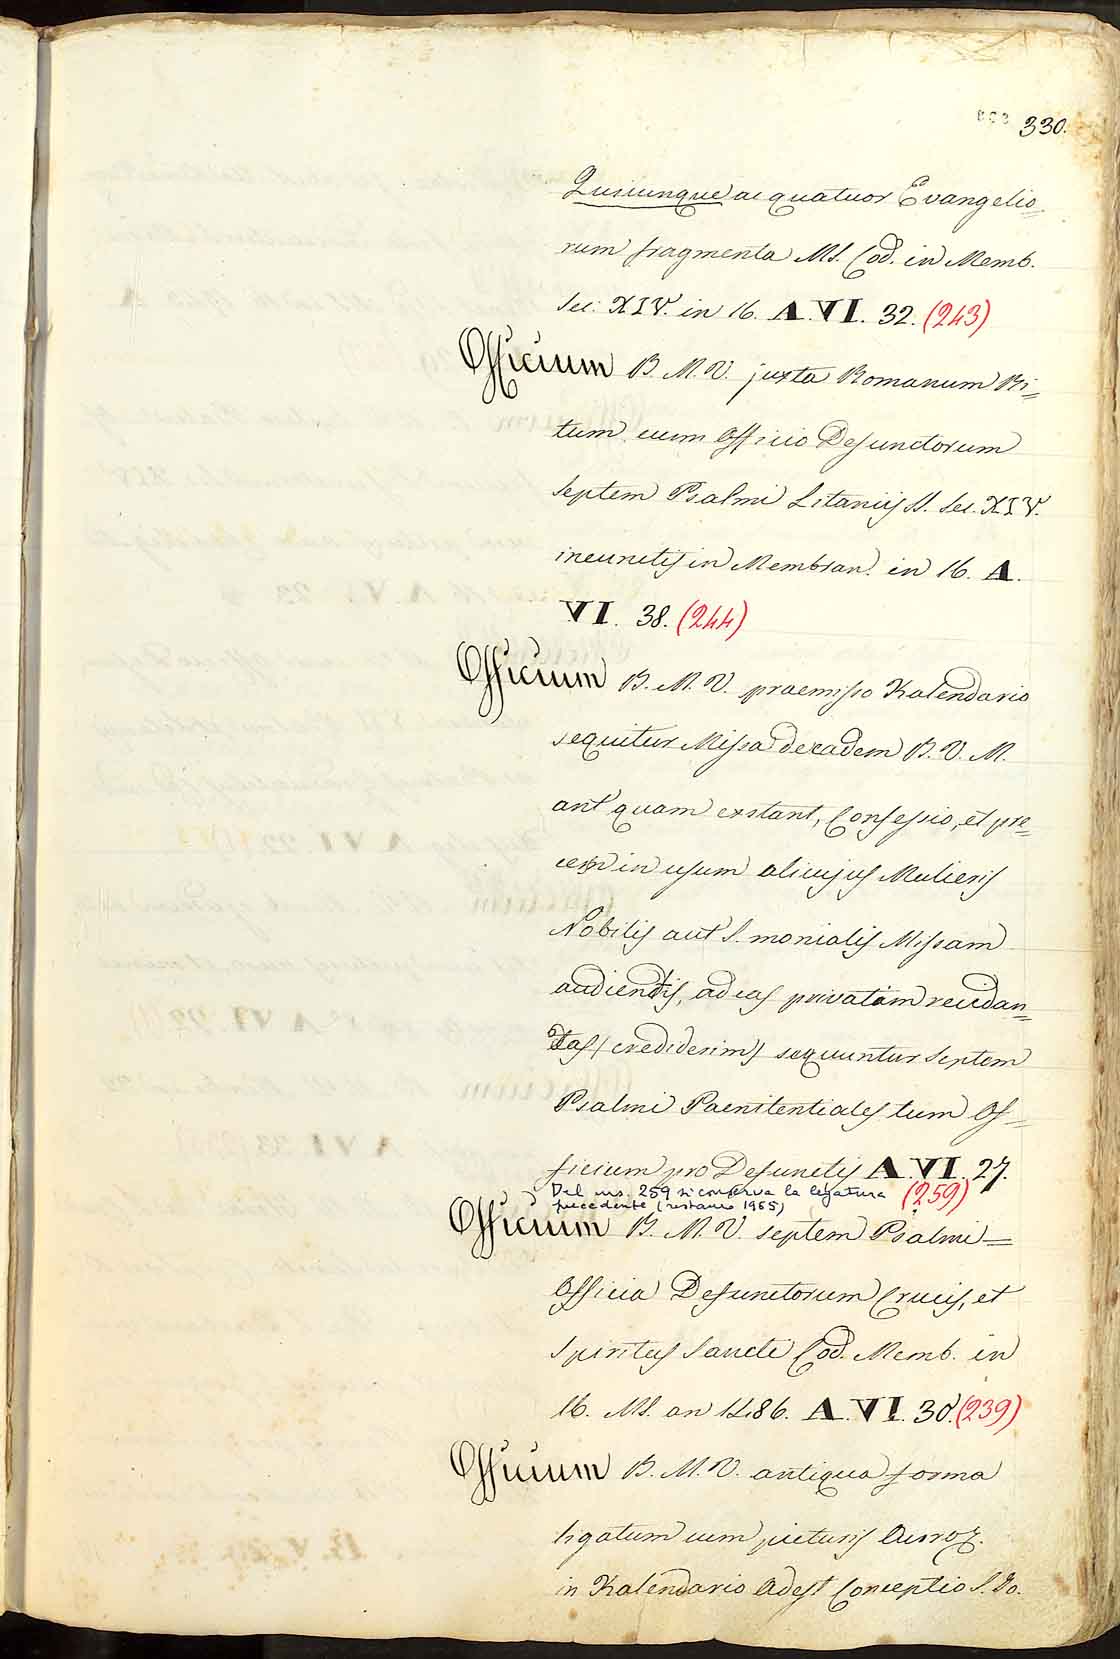 330.
Quicunque ac quatuor Evangelio=
rum fragmenta MS. Cod. in Memb.
sec. XIV. in 16. A. VI. 32. (243)
Officium B. M. V. juxta Romanum Ri=
tum cum Officio Defunctorum
septem Psalmi Litaniis SS. sec. XIV.
ineuntis in Membran. in 16. A.
VI. 38. (244)
Officium B. M. V. praemisso Kalendario
sequitur Missa de eadem B. V. M.
ant quam exstant, Confessio, et pre=
ces in usum alicujus Mulieris
Nobilis aut S. monialis Missam
audientis, ad eas privatim recidan=
das (crediderim) sequuntur septem
Psalmi Paenitentiales tum Of=
ficium pro Defunctis A. VI. 27.
Del ms. 259 si conserva la legatura (259)
precedente (restauro 1965)
Officium B. M. V. septem Psalmi=
Officia Defunctorum Crucis, et
Spiritus Sancti Cod. Memb. in
16. MS. an 1486. A. VI. 30. (239)
Officium B. M. V. antiqua forma
ligatum cum picturis
in Kalendario adest Conceptio S. Jo.